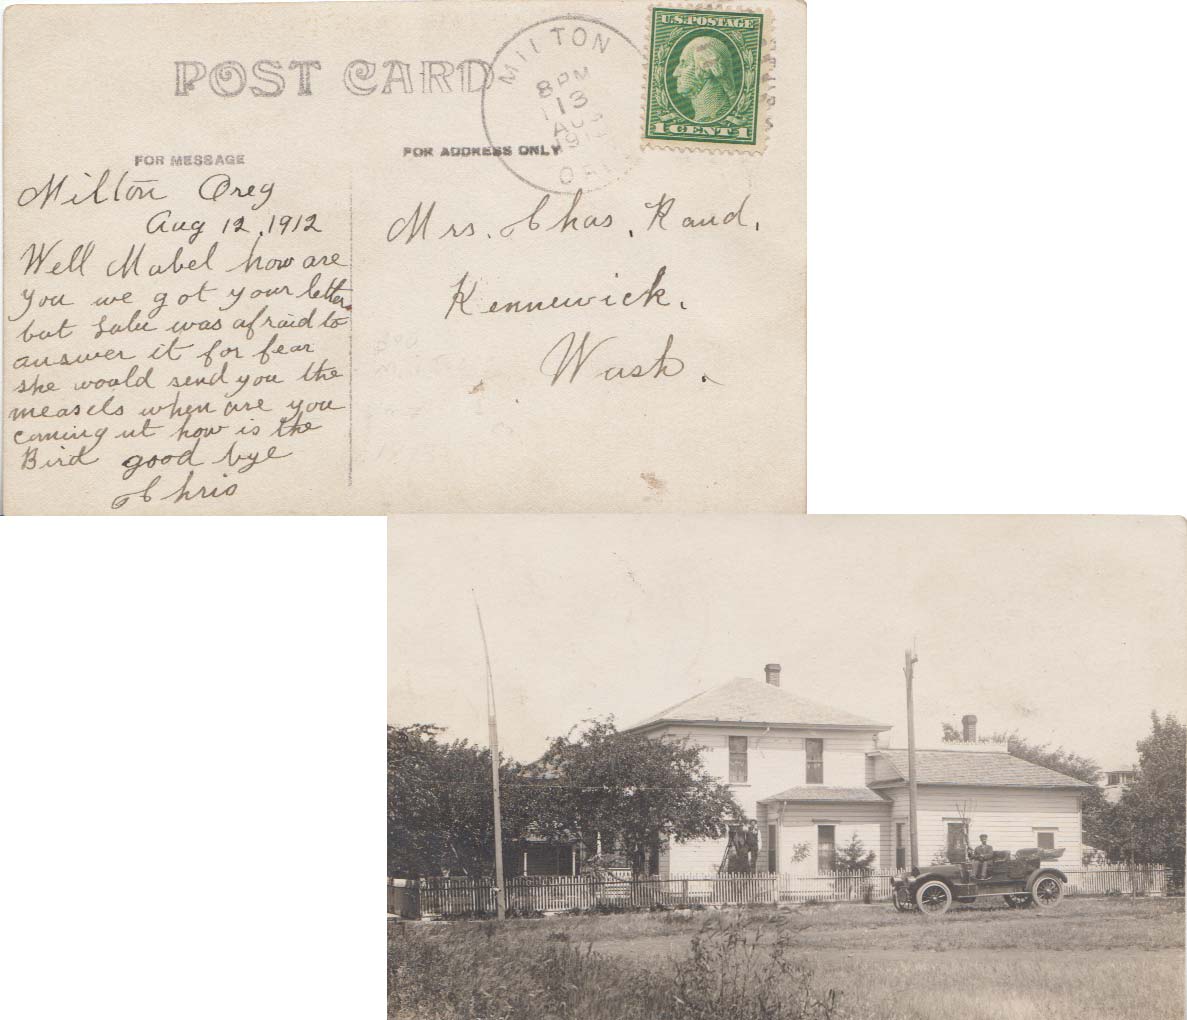 POST CARD
MILTON
8 PM
13
AUG
19
U.S. POSTAGE
1 CENT 1
FOR MESSAGE
FOR ADDRESS ONLY
Milton Oreg
Aug 12, 1912
Well Mabel how are
you we got your letter
but Lulu was afraid to
answer it for fear
she would send you the
measels when are you
coming ut how is the
Bird good bye
Chris
Mrs. Chas. Rand.
Kennewick.
Wash.